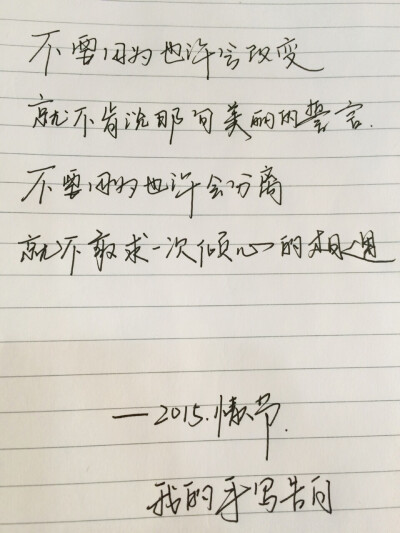 不要因为也许会改变
就不肯说那句美丽的誓言.
不要因为也许会分离
就不敢求一次倾心的相遇
—2015.情人节.
我的手写告白